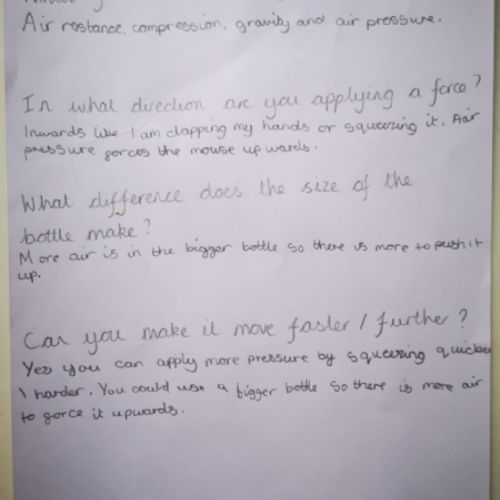 Air restance, compression, gravity and air pressure.
In what direction are you applying a force?
Inwards like I am clapping my hands or squeezing it. Air
pressure forces the mouse upwards.
What difference does the size of the
bottle make?
More air is in the bigger bottle so there is more to push it
up.
Can you make it move faster / further?
Yes you can apply more pressure by squeezing quicker
/ harder. You could use a bigger bottle so there is more air
to force it upwards.